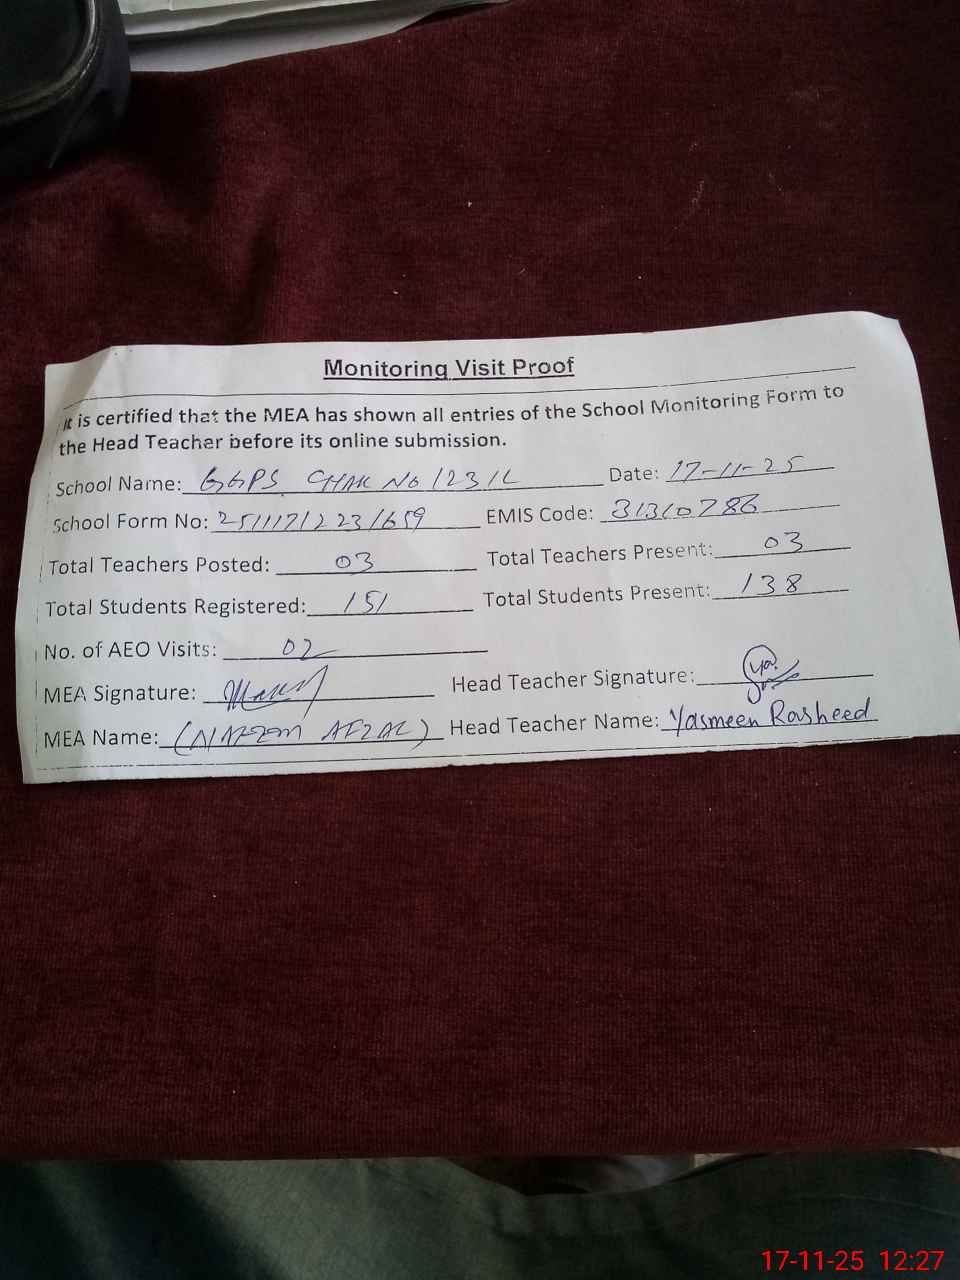 Monitoring Visit Proof
It is certified that the MEA has shown all entries of the School Monitoring Form to
the Head Teacher before its online submission.
School Name: GGPS CHAK NO 123 1L Date: 17-11-25
School Form No: 25111712231659 EMIS Code: 31310786
Total Teachers Posted: 03 Total Teachers Present: 03
Total Students Registered: 151 Total Students Present: 138
No. of AEO Visits: 02
MEA Signature: Head Teacher Signature:
MEA Name: (NAEEM AFZAL) Head Teacher Name: Yasmeen Rasheed
17-11-25 12:27